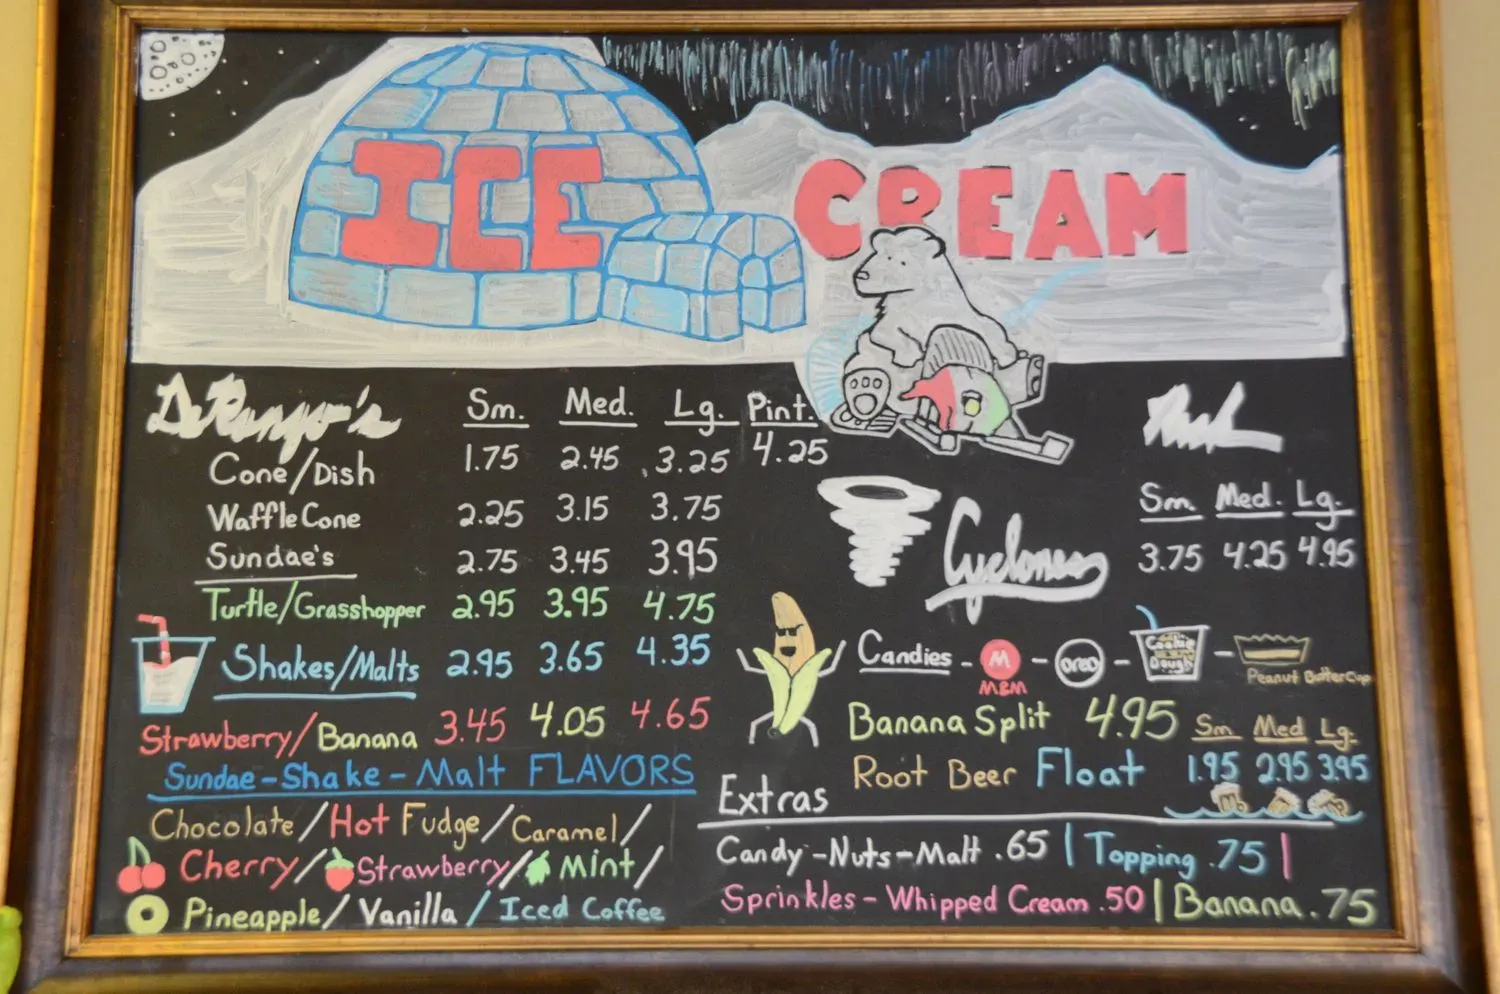 ICE CREAM
DeRango's Sm. Med. Lg. Pint.
Cone/Dish 1.75 2.45 3.25 4.25
Waffle Cone 2.25 3.15 3.75
Sundae's 2.75 3.45 3.95
Turtle/Grasshopper 2.95 3.95 4.75
Shakes/Malts 2.95 3.65 4.35
Strawberry/Banana 3.45 4.05 4.65
Sundae-Shake-Malt FLAVORS
Chocolate/Hot Fudge/Caramel/
Cherry/Strawberry/Mint/
Pineapple/Vanilla/Iced Coffee
Sm. Med. Lg.
Cyclones 3.75 4.25 4.95
Candies - M - OREO - Cookie Dough -
M&M Peanut Butter Cup
Banana Split 4.95 Sm Med Lg.
Root Beer Float 1.95 2.95 3.95
Extras
Candy-Nuts-Malt .65 | Topping .75 |
Sprinkles - Whipped Cream .50 | Banana .75